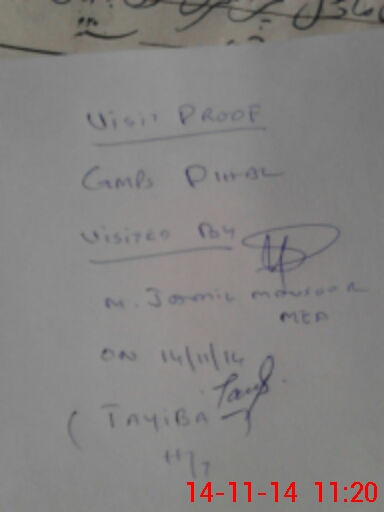 Visit PROOF
GMPS
Visited By
M. Jamil Mansoor
MEA
ON 14/11/14
(TAYIBA
H/T
14-11-14 11:20